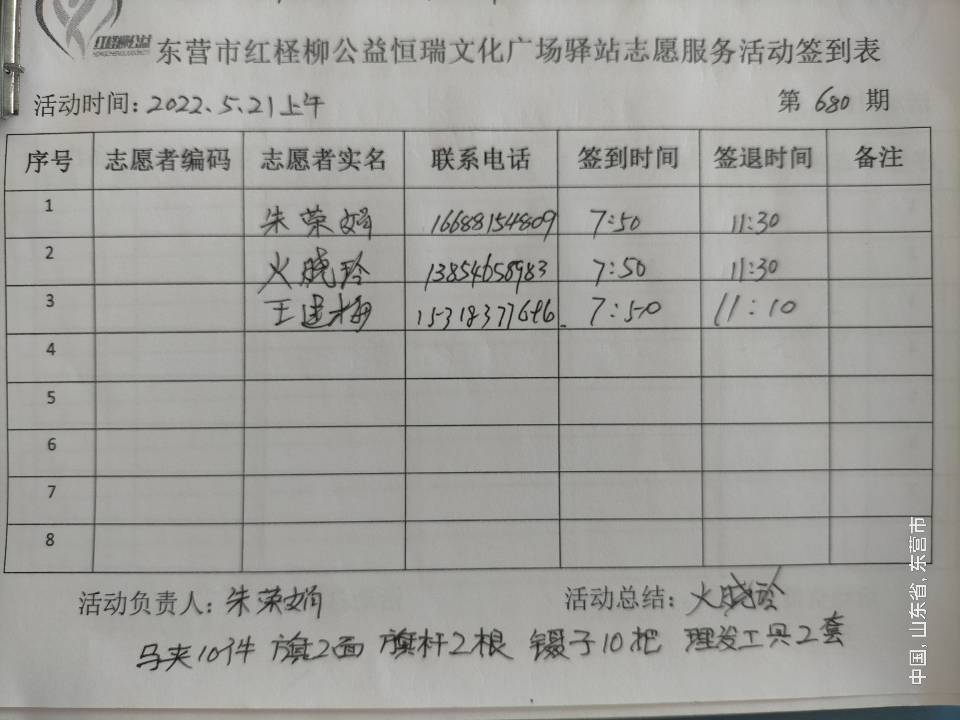 红柽柳公益
东营市红柽柳公益恒瑞文化广场驿站志愿服务活动签到表
活动时间:2022.5.21上午 第 680 期
序号 志愿者编码 志愿者实名 联系电话 签到时间 签退时间 备注
1 朱荣娟 16688154809 7:50 11:30
2 火晓玲 13854658983 7:50 11:30
3 王建梅 15318377646 7:50 11:10
4
5
6
7
8
活动负责人:朱荣娟 活动总结:火晓玲
马夹10件 旗2面 旗杆2根 镊子10把 理发工具2套
中国,山东省,东营市